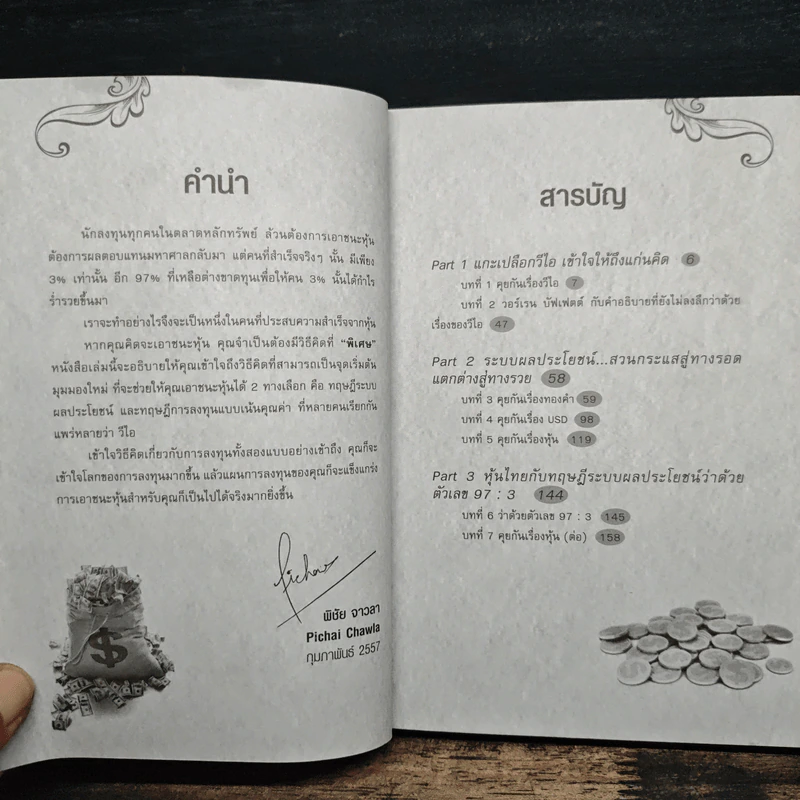 คำนำ
นักลงทุนทุกคนในตลาดหลักทรัพย์ ล้วนต้องการเอาชนะหุ้น
ต้องการผลตอบแทนมหาศาลกลับมา แต่คนที่สำเร็จจริงๆ นั้น มีเพียง
3% เท่านั้น อีก 97% ที่เหลือต่างขาดทุนเพื่อให้คน 3% นั้นได้กำไร
ร่ำรวยขึ้นมา
เราจะทำอย่างไรจึงจะเป็นหนึ่งในคนที่ประสบความสำเร็จจากหุ้น
หากคุณคิดจะเอาชนะหุ้น คุณจำเป็นต้องมีวิธีคิดที่ "พิเศษ"
หนังสือเล่มนี้จะอธิบายให้คุณเข้าใจถึงวิธีคิดที่สามารถเป็นจุดเริ่มต้น
มุมมองใหม่ ที่จะช่วยให้คุณเอาชนะหุ้นได้ 2 ทางเลือก คือ ทฤษฎีระบบ
ผลประโยชน์ และทฤษฎีการลงทุนแบบเน้นคุณค่า ที่หลายคนเรียกกัน
แพร่หลายว่า วีไอ
เข้าใจวิธีคิดเกี่ยวกับการลงทุนทั้งสองแบบอย่างเข้าถึง คุณก็จะ
เข้าใจโลกของการลงทุนมากขึ้น แล้วแผนการลงทุนของคุณก็จะแข็งแกร่ง
การเอาชนะหุ้นสำหรับคุณก็เป็นไปได้จริงมากยิ่งขึ้น
Pichai
พิชัย จาวลา
Pichai Chawla
กุมภาพันธ์ 2557
$
สารบัญ
Part 1 แกะเปลือกวีไอ เข้าใจให้ถึงแก่นคิด 6
บทที่ 1 คุยกันเรื่องวีไอ 7
บทที่ 2 วอร์เรน บัฟเฟตต์ กับคำอธิบายที่ยังไม่ลงลึกว่าด้วย
เรื่องของวีไอ 47
Part 2 ระบบผลประโยชน์...สวนกระแสสู่ทางรอด
แตกต่างสู่ทางรวย 58
บทที่ 3 คุยกันเรื่องทองคำ 59
บทที่ 4 คุยกันเรื่อง USD 98
บทที่ 5 คุยกันเรื่องหุ้น 119
Part 3 หุ้นไทยกับทฤษฎีระบบผลประโยชน์ว่าด้วย
ตัวเลข 97 : 3 144
บทที่ 6 ว่าด้วยตัวเลข 97 : 3 145
บทที่ 7 คุยกันเรื่องหุ้น (ต่อ) 158